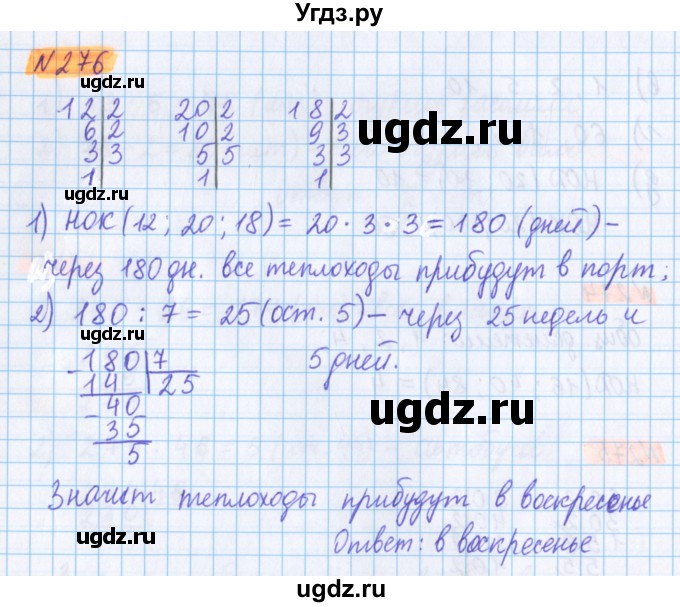 Угдз.ру
N 276
gdz.ru
12 | 2   20 | 2   18 | 2
6 | 2   10 | 2   9 | 3
3 | 3   5 | 5   3 | 3
1 |   1 |   1 |
ugdz.ru
gdz.ru
1) НОК (12; 20; 18) = 20 · 3 · 3 = 180 (дней) –
через 180 дн. все теплоходы прибудут в порт;
ugdz.ru
2) 180 : 7 = 25 (ост. 5) – через 25 недель и
5 дней.
- 180 | 7
14 | 25
- 40
35
5
gdz.ru
ugdz.ru
Значит теплоходы прибудут в воскресенье
gdz.ru
ugdz.ru
Ответ: в воскресенье
ugdz.ru